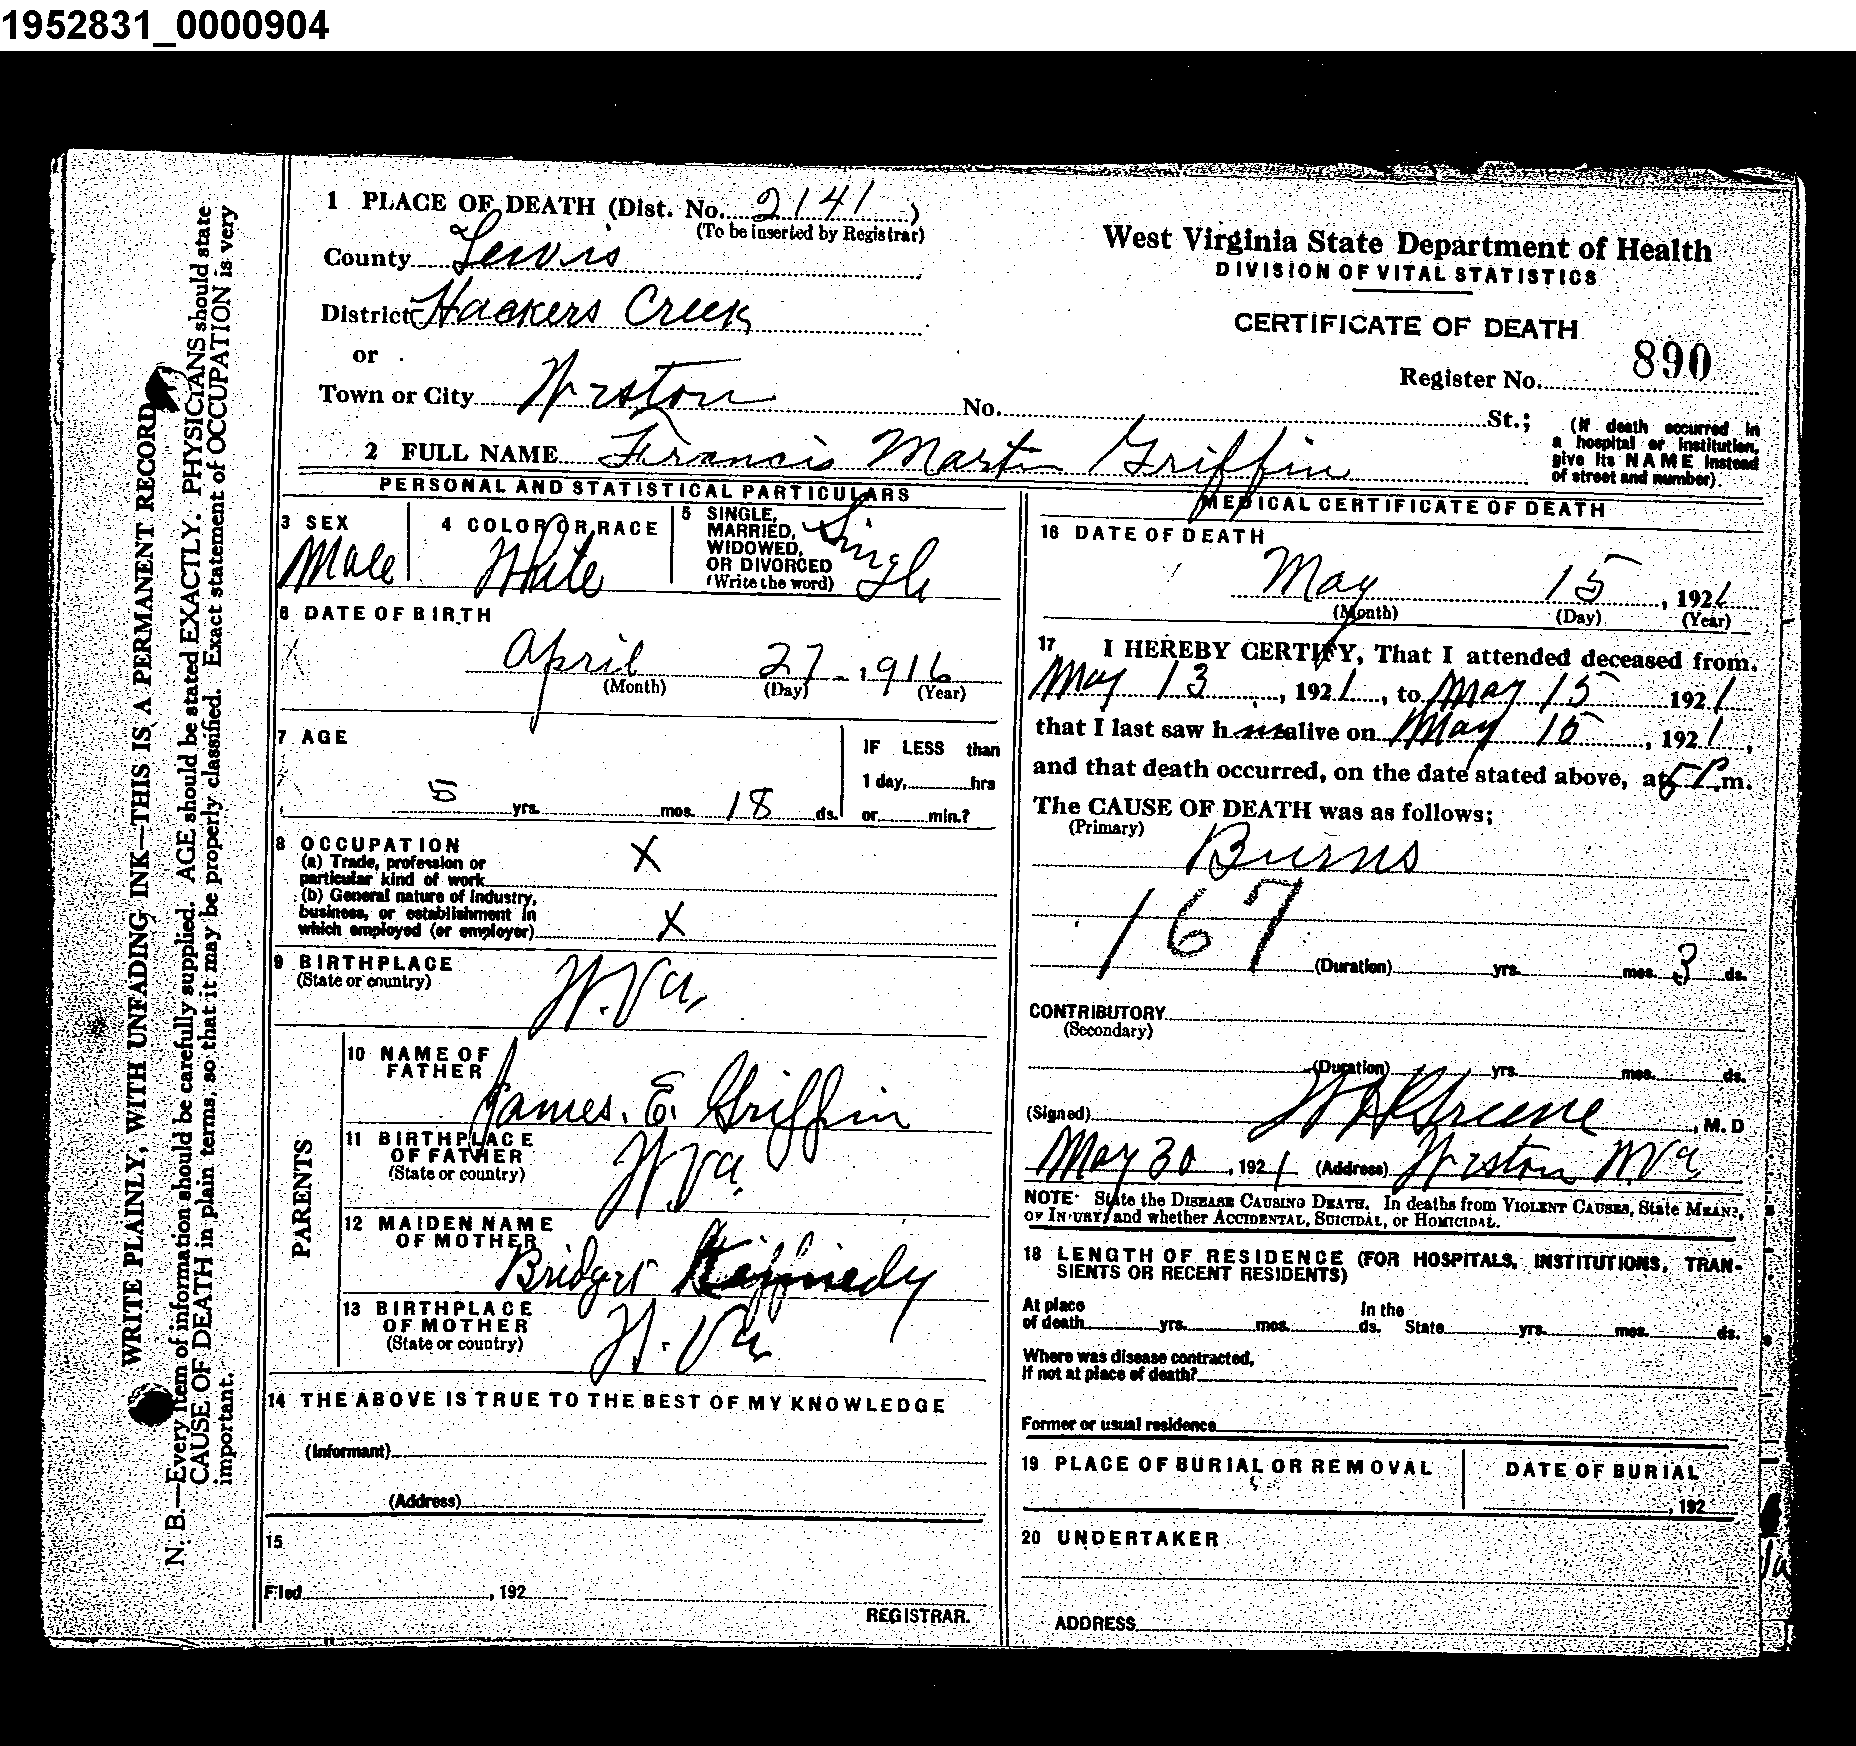 1952831_0000904
1 PLACE OF DEATH (Dist. No. 2141)
(To be inserted by Registrar)
County Lewis
District Hackers Creek
or
Town or City Weston No. St.;
(If death occurred in
a hospital or institution,
give its NAME instead
of street and number).
West Virginia State Department of Health
DIVISION OF VITAL STATISTICS
CERTIFICATE OF DEATH
Register No. 890
2 FULL NAME Francis Martin Griffin
PERSONAL AND STATISTICAL PARTICULARS
3 SEX
Male
4 COLOR OR RACE
White
5 SINGLE,
MARRIED,
WIDOWED,
OR DIVORCED
(Write the word)
Single
6 DATE OF BIRTH
April 27 - 1916
(Month) (Day) (Year)
7 AGE
5 yrs. mos. 18 ds.
IF LESS than
1 day, hrs
or min.?
8 OCCUPATION
(a) Trade, profession or
particular kind of work X
(b) General nature of industry,
business, or establishment in
which employed (or employer) X
9 BIRTHPLACE
(State or country) W.Va.
PARENTS
10 NAME OF
FATHER
James. E. Griffin
11 BIRTHPLACE
OF FATHER
(State or country) W.Va.
12 MAIDEN NAME
OF MOTHER
Bridget Kennedy
13 BIRTHPLACE
OF MOTHER
(State or country) W. Va.
14 THE ABOVE IS TRUE TO THE BEST OF MY KNOWLEDGE
(Informant)
(Address)
15
Filed , 192
REGISTRAR.
MEDICAL CERTIFICATE OF DEATH
16 DATE OF DEATH
May 15 , 1921
(Month) (Day) (Year)
17 I HEREBY CERTIFY, That I attended deceased from
May 13 , 1921 , to May 15 1921
that I last saw h im alive on May 15 , 1921 ,
and that death occurred, on the date stated above, at 5 P. m.
The CAUSE OF DEATH was as follows;
(Primary)
Burns
167
(Duration) yrs. mos. 3 ds.
CONTRIBUTORY
(Secondary)
(Duration) yrs. mos. ds.
(Signed) Greene , M. D
May 30 , 1921 (Address) Weston W.Va
NOTE State the DISEASE CAUSING DEATH. In deaths from VIOLENT CAUSES, State MEANS
OF INJURY; and whether ACCIDENTAL, SUICIDAL, or HOMICIDAL.
18 LENGTH OF RESIDENCE (FOR HOSPITALS, INSTITUTIONS, TRAN-
SIENTS OR RECENT RESIDENTS)
At place
of death yrs. mos. ds.
In the
State yrs. mos. ds.
Where was disease contracted,
If not at place of death?
Former or usual residence
19 PLACE OF BURIAL OR REMOVAL
DATE OF BURIAL
, 192
20 UNDERTAKER
ADDRESS
WRITE PLAINLY, WITH UNFADING INK—THIS IS A PERMANENT RECORD
N. B.—Every item of information should be carefully supplied. AGE should be stated EXACTLY. PHYSICIANS should state
CAUSE OF DEATH in plain terms, so that it may be properly classified. Exact statement of OCCUPATION is very
important.